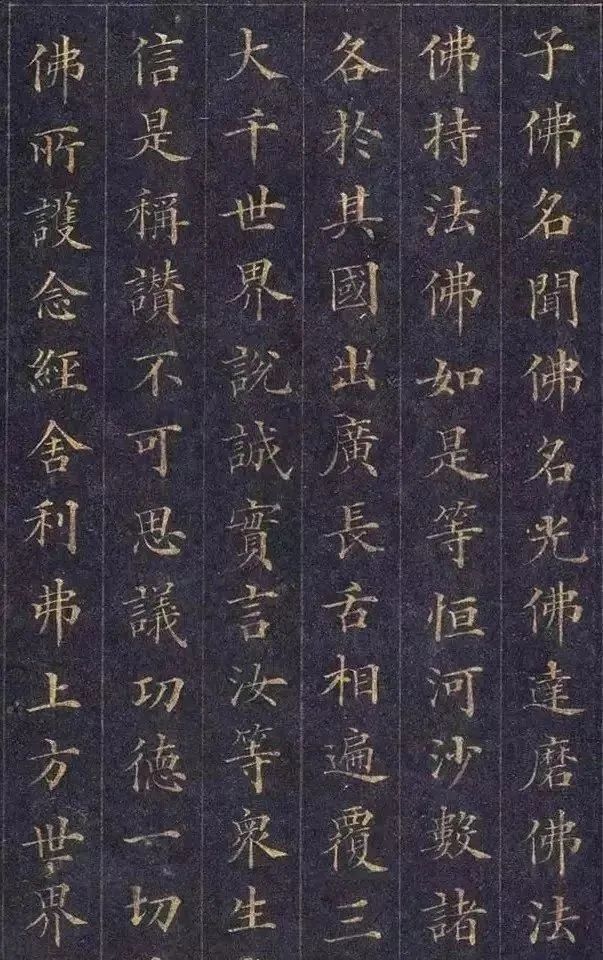 子佛名聞佛名光佛達磨佛法
佛持法佛如是等恒河沙數諸
各於其國出廣長舌相遍覆三
大千世界說誠實言汝等衆生
信是稱讚不可思議功德一切
佛所護念經舍利弗上方世界